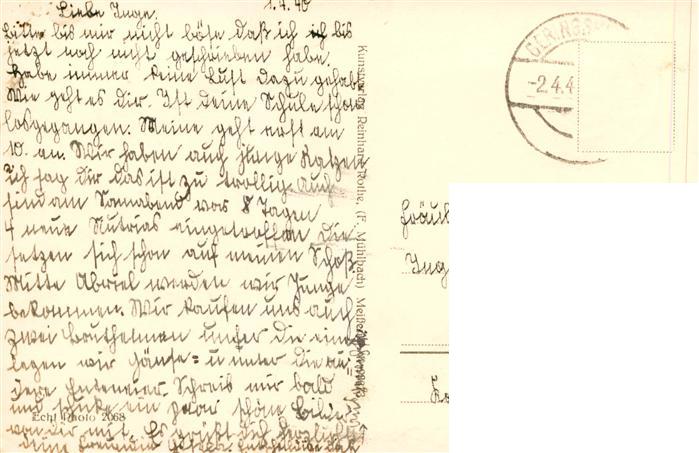 Liebe Inge. 1.4.40
Bitte bis mir nicht böse daß ich ich bis
jetzt noch nicht geschrieben habe.
Habe immer keine Lust dazu gehabt
Wie geht es dir. Ist deine Schule schon
losgegangen. Meine geht erst am
10. an. Wir haben auch junge Katzen
ich sag dir das ist zu drollig. Auch
sind am Sonnabend vor 8 Tagen
4 neue Nutrias eingetroffen die
setzen sich schon auf meinen Schoß.
Mitte werden wir Junge
bekommen. Wir kaufen uns auch
zwei die eine
legen wir Gänse= u unter die an-
dere Enteneier. Schreib mir bald
und schicke ein paar schöne Bilder
von dir mit. Es grüßt dich herzlichst
deine Freundin
Echt Photo 2068
Kunstverlag Reinhard Rothe, (F. Mühlbach) Meißen
-2.4.4
Fräul
Ing